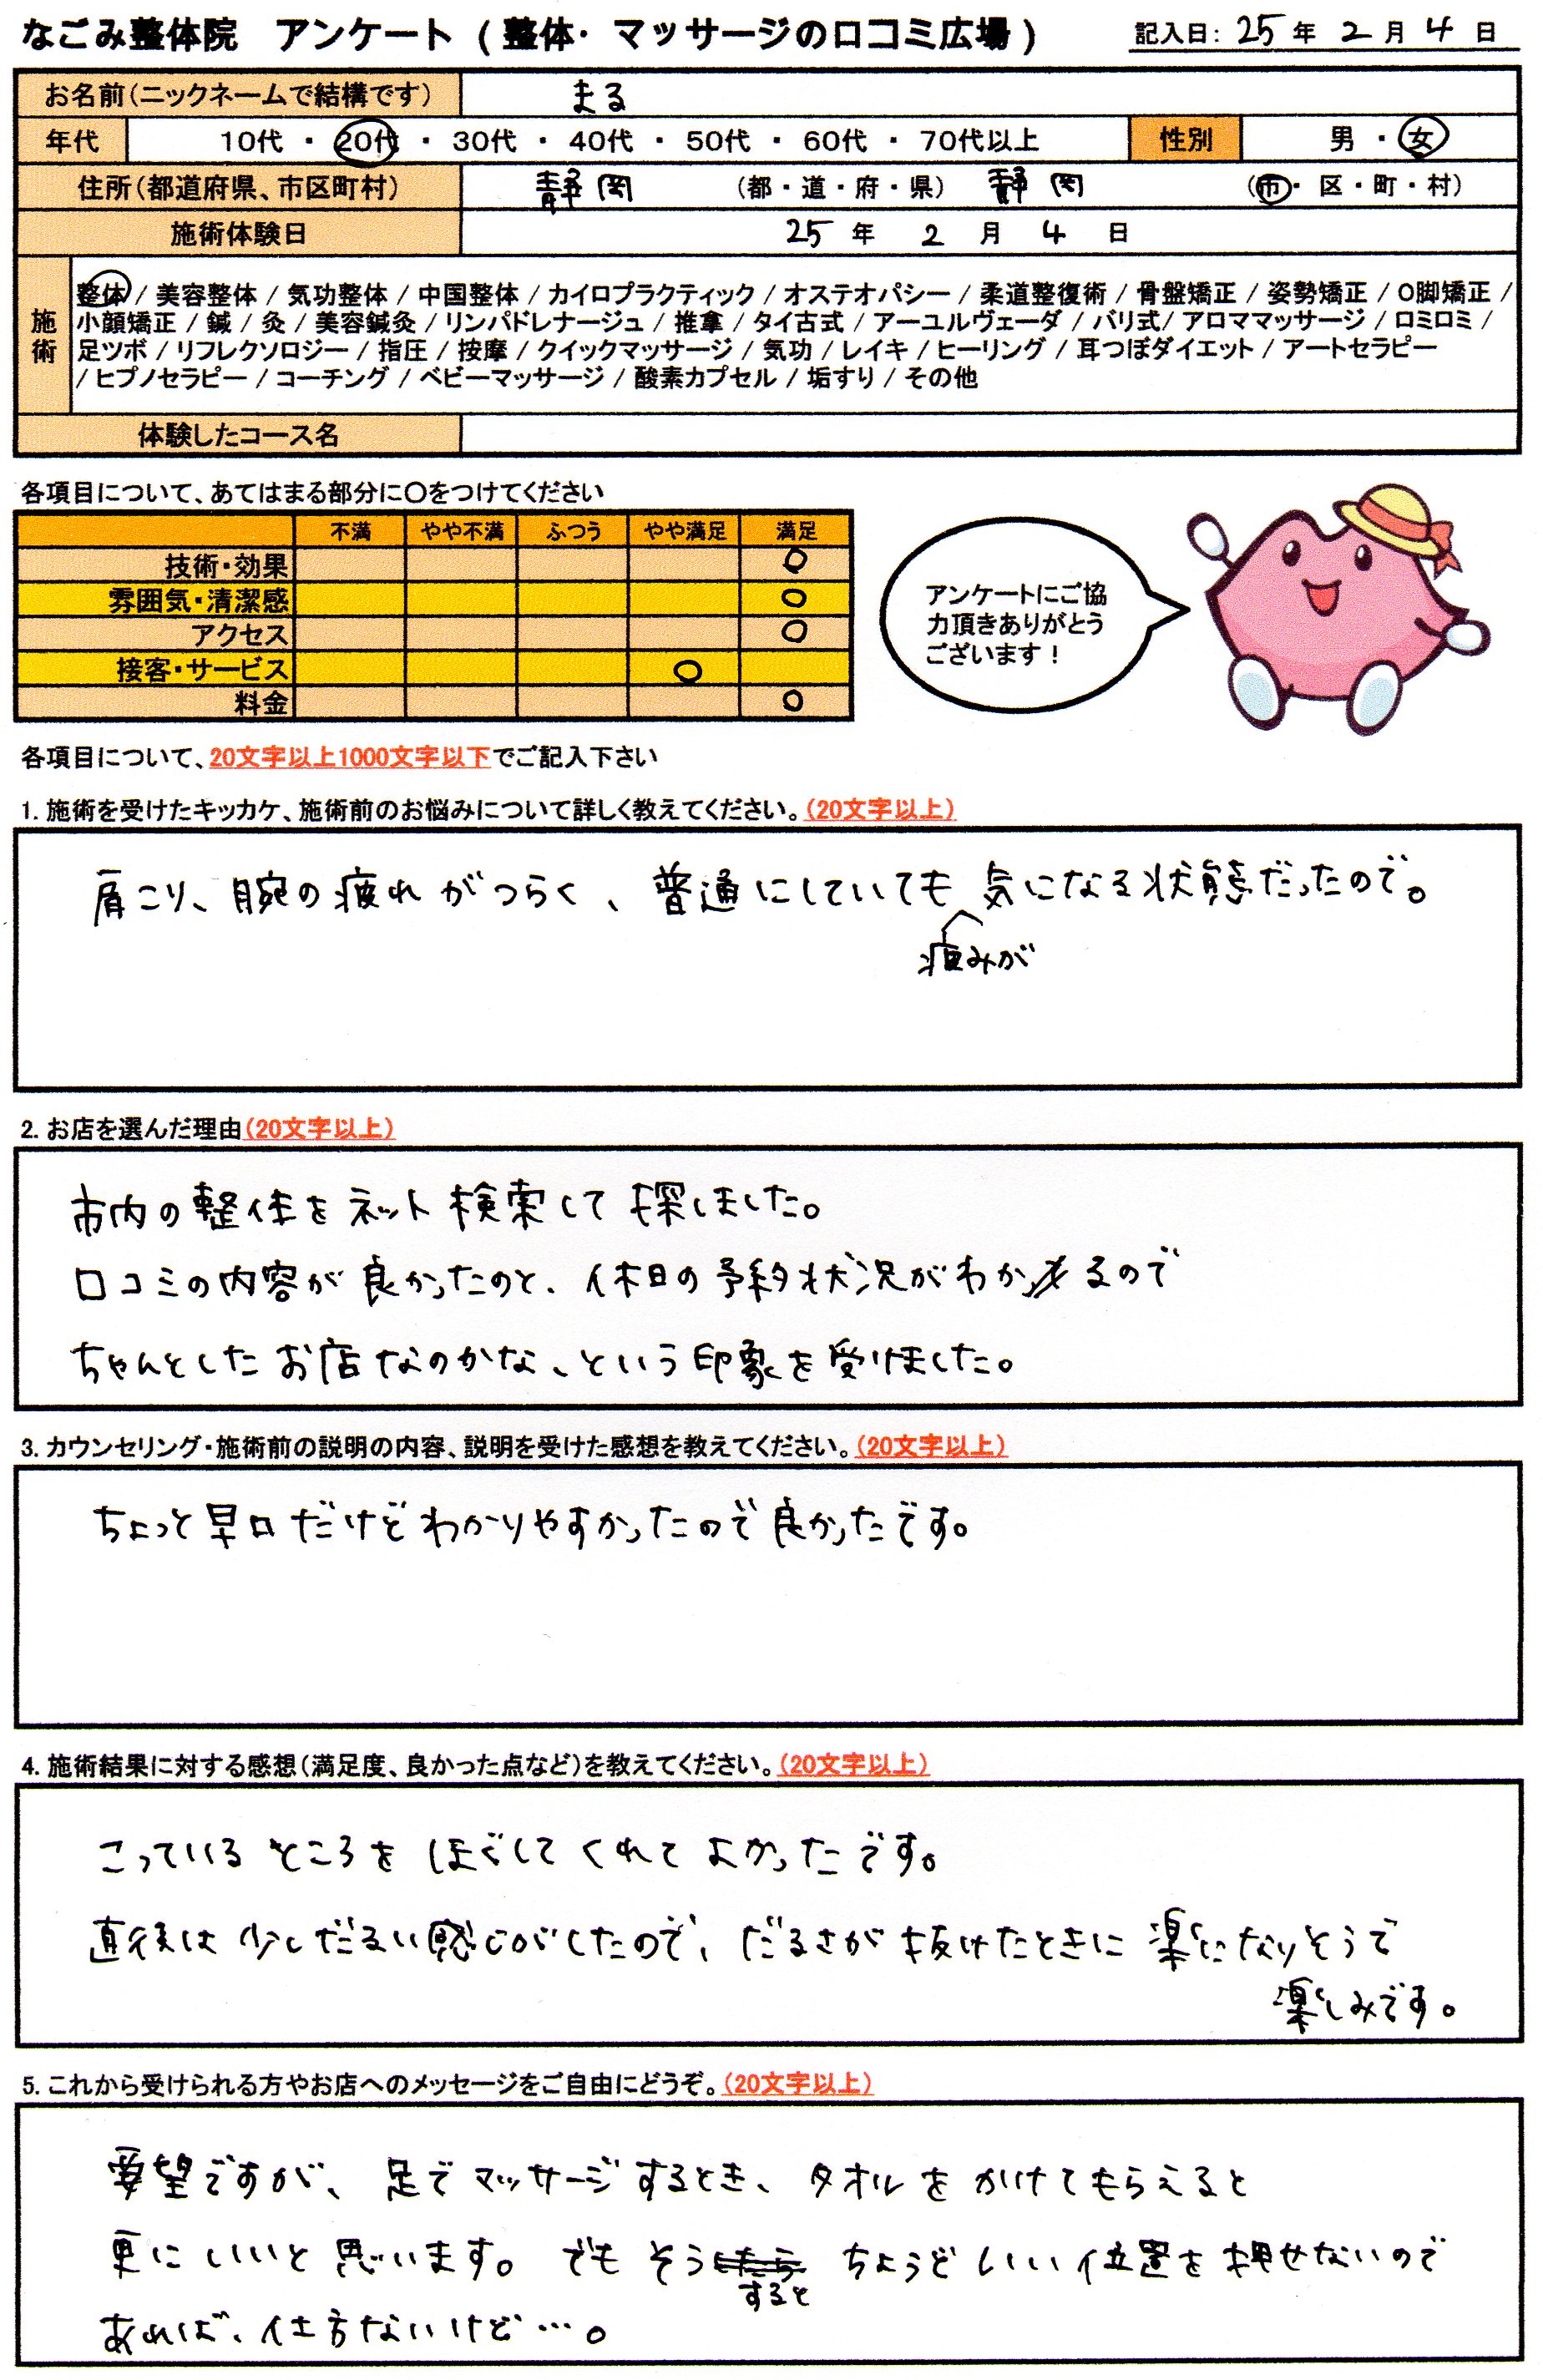 なごみ整体院 アンケート (整体・マッサージの口コミ広場) 記入日: 25年 2月 4日
お名前(ニックネームで結構です) まる
年代 10代 ・ 20代 ・ 30代 ・ 40代 ・ 50代 ・ 60代 ・ 70代以上 性別 男 ・ 女
住所(都道府県、市区町村) 静岡 (都・道・府・県) 静岡 (市・区・町・村)
施術体験日 25年 2月 4日
施術
整体 / 美容整体 / 気功整体 / 中国整体 / カイロプラクティック / オステオパシー / 柔道整復術 / 骨盤矯正 / 姿勢矯正 / O脚矯正 /
小顔矯正 / 鍼 / 灸 / 美容鍼灸 / リンパドレナージュ / 推拿 / タイ古式 / アーユルヴェーダ / バリ式 / アロママッサージ / ロミロミ /
足ツボ / リフレクソロジー / 指圧 / 按摩 / クイックマッサージ / 気功 / レイキ / ヒーリング / 耳つぼダイエット / アートセラピー
/ ヒプノセラピー / コーチング / ベビーマッサージ / 酸素カプセル / 垢すり / その他
体験したコース名
各項目について、あてはまる部分に○をつけてください
不満 やや不満 ふつう やや満足 満足
技術・効果 ○
雰囲気・清潔感 ○
アクセス ○
接客・サービス ○
料金 ○
アンケートにご協
力頂きありがとう
ございます！
各項目について、20文字以上1000文字以下でご記入下さい
1. 施術を受けたキッカケ、施術前のお悩みについて詳しく教えてください。(20文字以上)
肩こり、腕の疲れがつらく、普通にしていても気になる状態だったので。
痛みが
2. お店を選んだ理由(20文字以上)
市内の整体をネット検索して探しました。
口コミの内容が良かったのと、休日の予約状況がわかるので
ちゃんとしたお店なのかな、という印象を受けました。
3. カウンセリング・施術前の説明の内容、説明を受けた感想を教えてください。(20文字以上)
ちょっと早口だけどわかりやすかったので良かったです。
4. 施術結果に対する感想(満足度、良かった点など)を教えてください。(20文字以上)
こっているところをほぐしてくれてよかったです。
直後は少しだるい感じがしたので、だるさが抜けたときに楽になりそうで
楽しみです。
5. これから受けられる方やお店へのメッセージをご自由にどうぞ。(20文字以上)
要望ですが、足でマッサージするとき、タオルをかけてもらえると
更にいいと思います。でもそうするとちょうどいい位置を押せないので
あれば、仕方ないけど…。